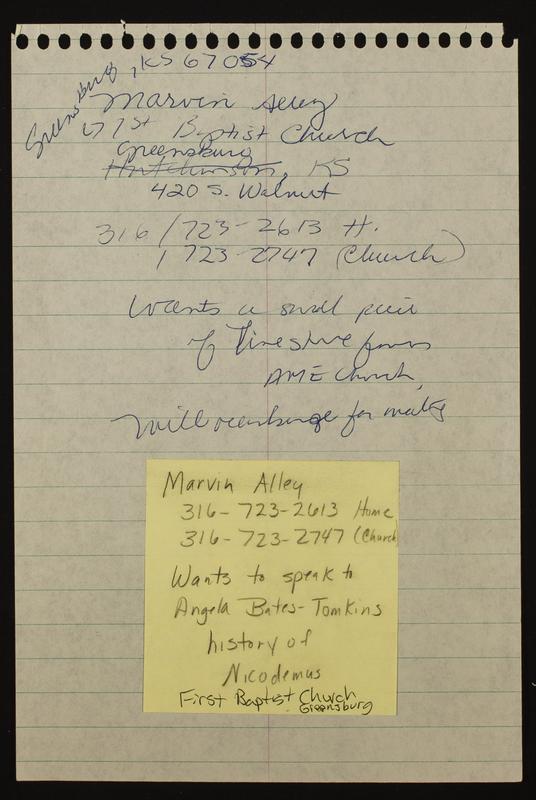 Greensburg, KS 67054
Marvin Alley
1st Baptist Church
Greensburg
Hutchinson, KS
420 S. Walnut
316/723-2613 H.
/723-2747 (Church)
Wants a small piece
of limestone from
AME Church,
Will reemburge for mailing
Marvin Alley
316-723-2613 Home
316-723-2747 (Church)
Wants to speak to
Angela Bates-Tomkins
history of
Nicodemus
First Baptist Church
Greensburg